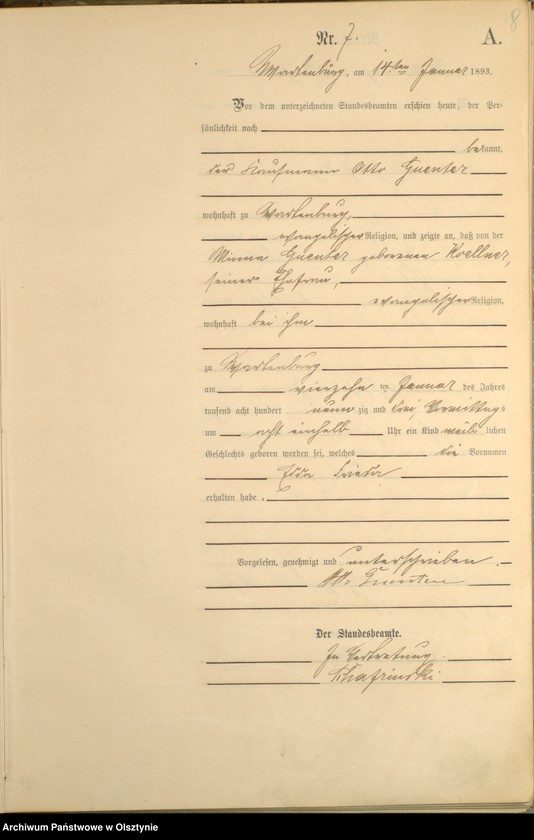 8
Nr. 7. A.
Wartenburg, am 14ten Januar 1893.
Vor dem unterzeichneten Standesbeamten erschien heute, der Per-
sönlichkeit nach
bekannt,
der Kaufmann Otto Guenter
wohnhaft zu Wartenburg,
evangelischer Religion, und zeigte an, daß von der
Minna Guenter geborenen Koellner,
seiner Ehefrau,
evangelischer Religion,
wohnhaft bei ihm
zu Wartenburg
am vierzehn ten Januar des Jahres
tausend acht hundert neun zig und drei, Vormittags
um acht einhalb Uhr ein Kind weib lichen
Geschlechts geboren worden sei, welches die Vornamen
Frieda
erhalten habe.
Vorgelesen, genehmigt und unterschrieben.
Otto Guenter
Der Standesbeamte.
In Vertretung
Archiwum Państwowe w Olsztynie